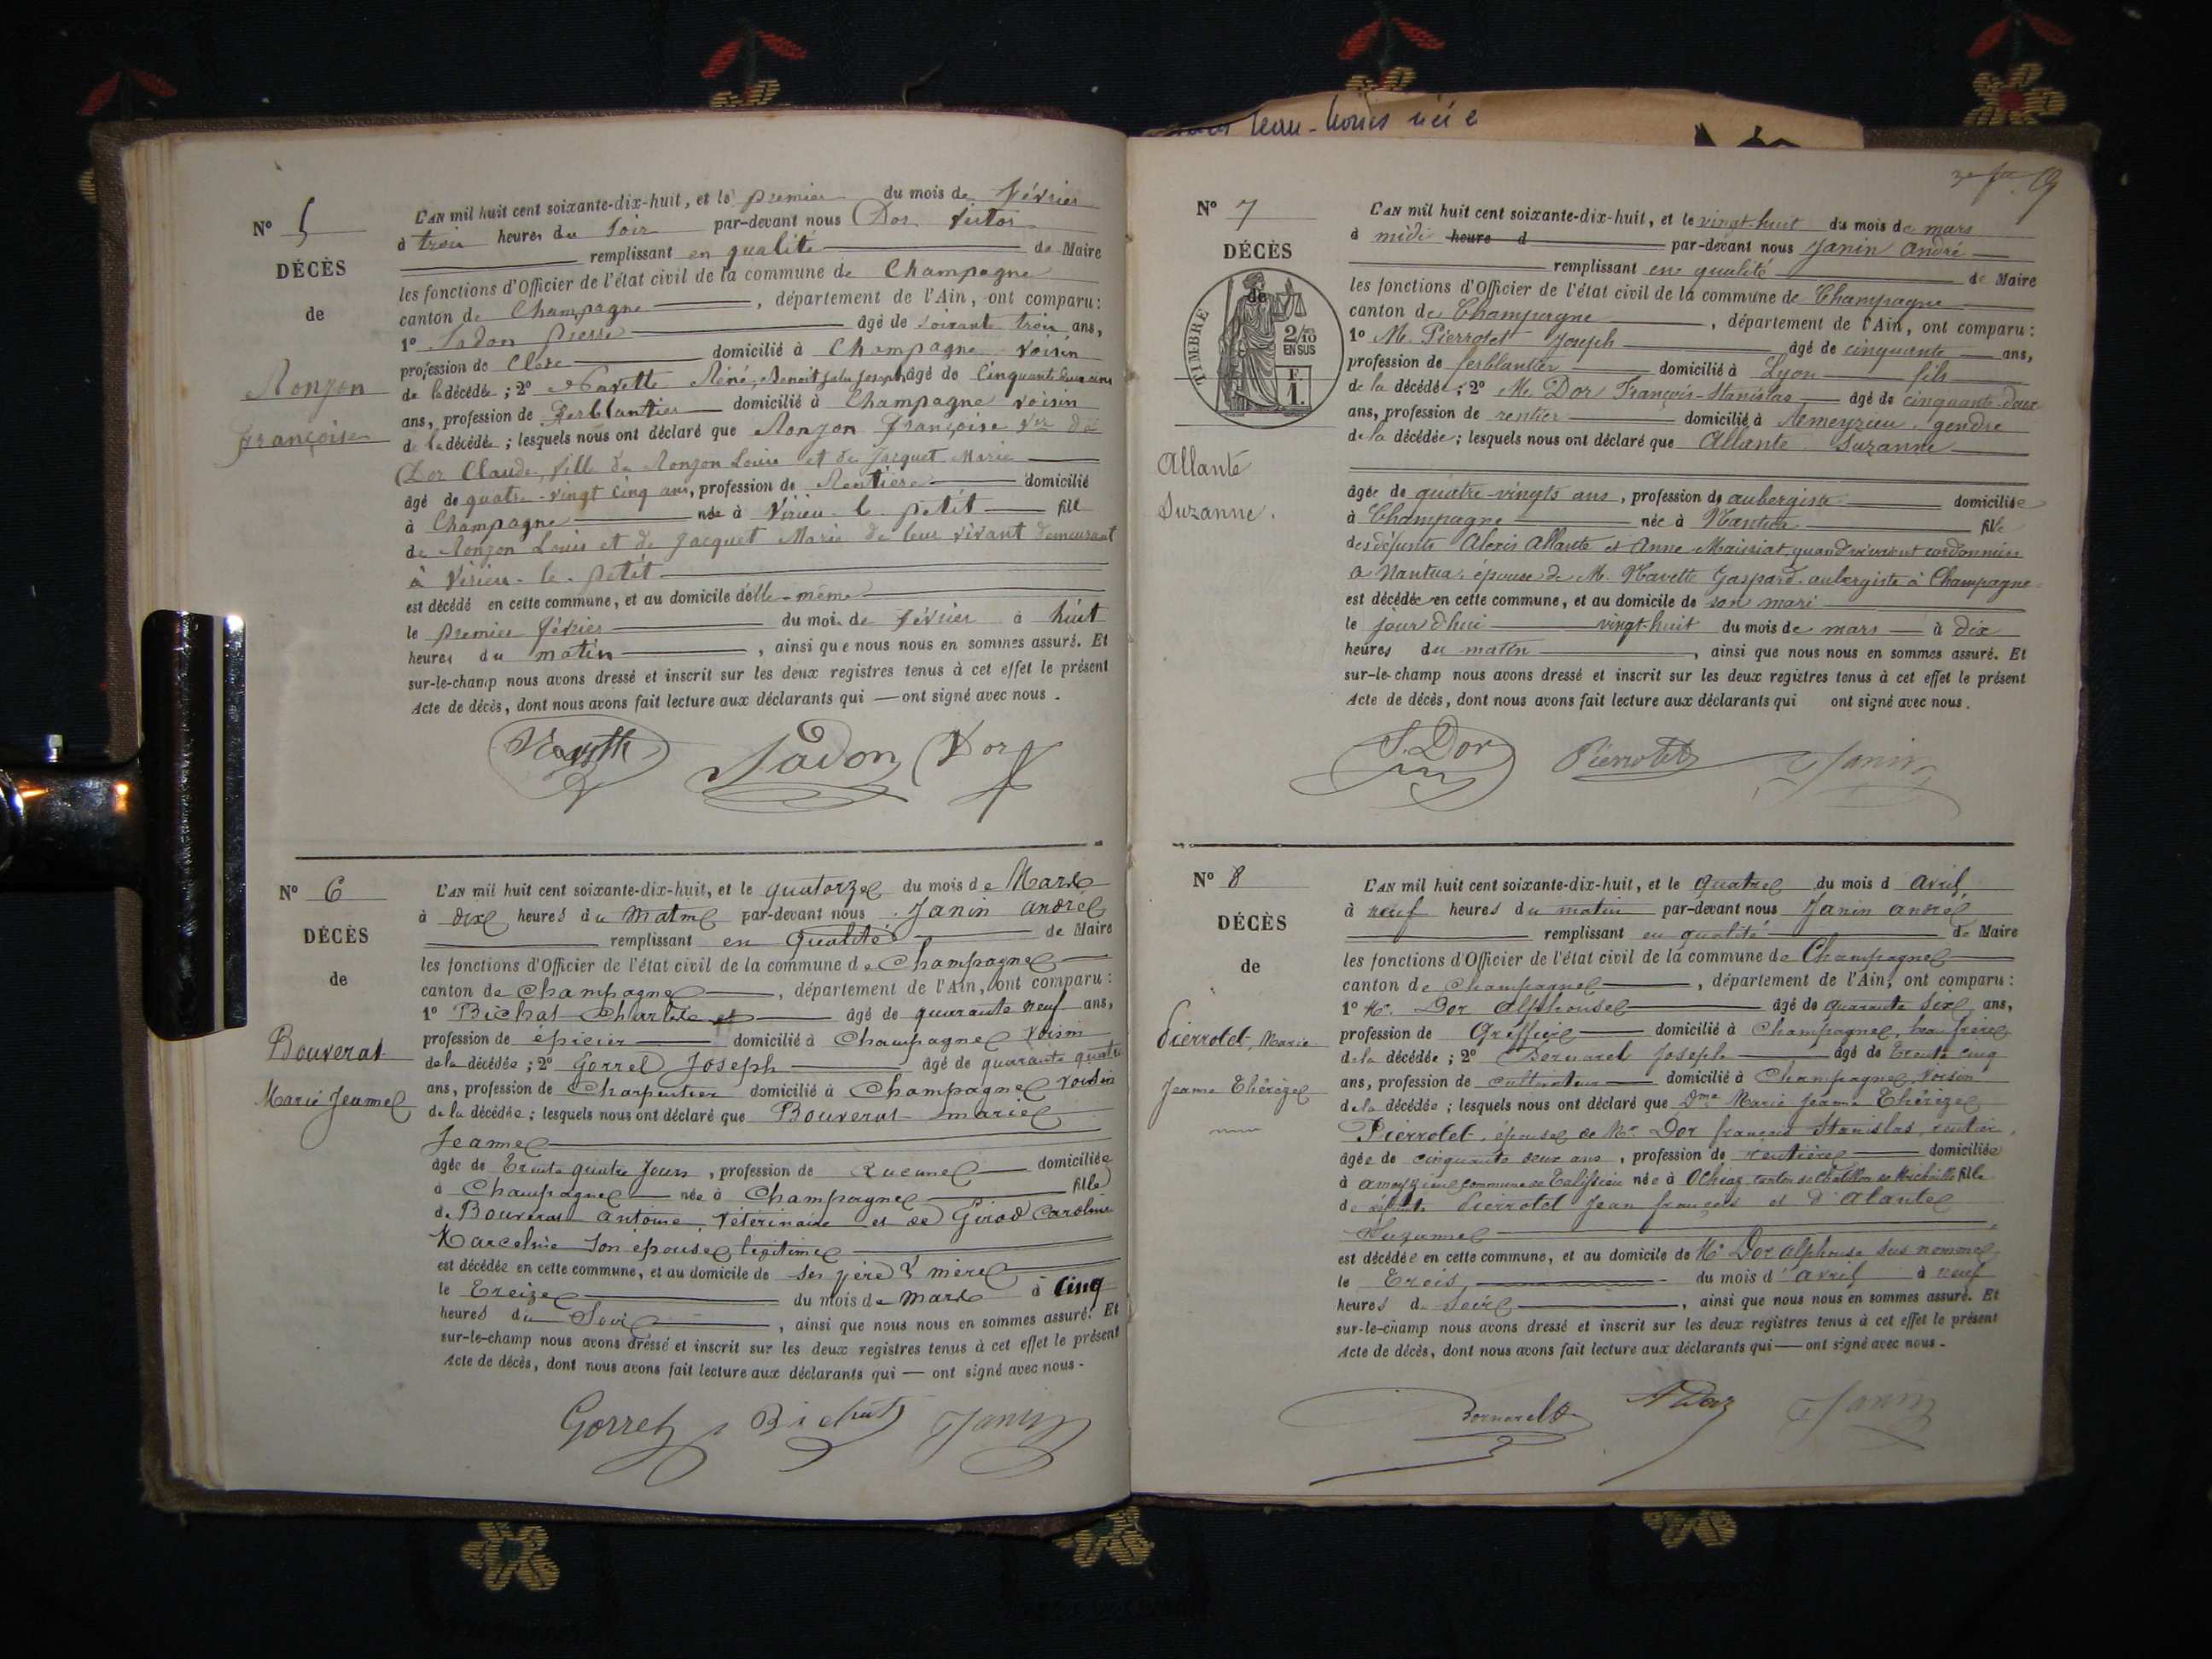 N° 5
DÉCÈS
de
Ronzon
Françoise
L'AN mil huit cent soixante-dix-huit, et le premier du mois de Février
à trois heures du Soir par-devant nous Dor Victor
remplissant en qualité de Maire
les fonctions d'Officier de l'état civil de la commune de Champagne
canton de Champagne, département de l'Ain, ont comparu :
1° Sadon Pierre âgé de soixante trois ans,
profession de Clerc domicilié à Champagne voisin
de la décédée ; 2° Navette Réné, Benoit Joseph âgé de Cinquante deux ans
ans, profession de Ferblantier domicilié à Champagne voisin
de la décédée ; lesquels nous ont déclaré que Ronzon Françoise Vve de
Dor Claude, fille de Ronzon Louis et de Jacquet Marie
âgé de quatre-vingt cinq ans, profession de Rentière domicilié
à Champagne née à Virieu-le-petit fille
de Ronzon Louis et de Jacquet Marie de leur vivant demeurant
à Virieu-le-petit
est décédé en cette commune, et au domicile d'elle-même
le premier février du mois de février à huit
heures du matin, ainsi que nous nous en sommes assuré. Et
sur-le-champ nous avons dressé et inscrit sur les deux registres tenus à cet effet le présent
Acte de décès, dont nous avons fait lecture aux déclarants qui — ont signé avec nous.
Navette Sadon Dor
N° 6
DÉCÈS
de
Bouverat
Marie Jeanne
L'AN mil huit cent soixante-dix-huit, et le quatorze du mois de Mars
à dix heures du matin par-devant nous Janin André
remplissant en qualité de Maire
les fonctions d'Officier de l'état civil de la commune de Champagne
canton de Champagne, département de l'Ain, ont comparu :
1° Bichat Charles âgé de quarante neuf ans,
profession de épicier domicilié à Champagne voisin
de la décédée ; 2° Gorrel Joseph âgé de quarante quatre
ans, profession de Charpentier domicilié à Champagne voisin
de la décédée ; lesquels nous ont déclaré que Bouverat Marie
Jeanne
âgée de trente quatre jours, profession de aucune domiciliée
à Champagne née à Champagne fille
de Bouverat Antoine, Vétérinaire et de Girod Caroline
Marceline son épouse légitime
est décédée en cette commune, et au domicile de ses père & mère
le treize du mois de Mars à Cinq
heures du Soir, ainsi que nous nous en sommes assuré. Et
sur-le-champ nous avons dressé et inscrit sur les deux registres tenus à cet effet le présent
Acte de décès, dont nous avons fait lecture aux déclarants qui — ont signé avec nous.
Gorrel Bichat Janin
N° 7
DÉCÈS
de
TIMBRE
2/10
EN SUS
F.
1.
Allante
Suzanne.
L'AN mil huit cent soixante-dix-huit, et le vingt-huit du mois de mars
à midi heure d par-devant nous Janin André
remplissant en qualité de Maire
les fonctions d'Officier de l'état civil de la commune de Champagne
canton de Champagne, département de l'Ain, ont comparu :
1° M. Pierrotet Joseph âgé de cinquante ans,
profession de ferblantier domicilié à Lyon fils
de la décédée ; 2° M. Dor François-Stanislas âgé de cinquante-deux
ans, profession de rentier domicilié à Ameyzieu, gendre
de la décédée ; lesquels nous ont déclaré que Allante Suzanne
âgée de quatre-vingts ans, profession de aubergiste domiciliée
à Champagne née à Nantua fille
des défunts Alexis Allante et Anne Maissiat, quand vivaient cordonniers
à Nantua, épouse de M. Navette Gaspard, aubergiste à Champagne
est décédée en cette commune, et au domicile de son mari
le jour d'hui vingt-huit du mois de mars à dix
heures du matin, ainsi que nous nous en sommes assuré. Et
sur-le-champ nous avons dressé et inscrit sur les deux registres tenus à cet effet le présent
Acte de décès, dont nous avons fait lecture aux déclarants qui ont signé avec nous.
S. Dor Pierrotet Janin
N° 8
DÉCÈS
de
Pierrotet, Marie
Jeanne Thérèze
L'AN mil huit cent soixante-dix-huit, et le quatre du mois d avril
à neuf heures du matin par-devant nous Janin André
remplissant en qualité de Maire
les fonctions d'Officier de l'état civil de la commune de Champagne
canton de Champagne, département de l'Ain, ont comparu :
1° Mr. Dor Alphonse âgé de quarante six ans,
profession de Greffier domicilié à Champagne, beau frère
de la décédée ; 2° Bernarel Joseph âgé de trente cinq
ans, profession de cultivateur domicilié à Champagne, voisin
de la décédée ; lesquels nous ont déclaré que Dme Marie Jeanne Thérèze
Pierrotet, épouse de Mr Dor françois Stanislas, rentier,
âgée de cinquante deux ans, profession de rentière domiciliée
à ameyzieu commune de Talissieu née à Ochiaz canton de Chatillon de Michaille fille
de défunts Pierrotet Jean françois et d'Alante
Suzanne
est décédée en cette commune, et au domicile de Mr Dor Alphonse sus nommé
le trois du mois d'avril à neuf
heures du soir, ainsi que nous nous en sommes assuré. Et
sur-le-champ nous avons dressé et inscrit sur les deux registres tenus à cet effet le présent
Acte de décès, dont nous avons fait lecture aux déclarants qui — ont signé avec nous.
Bernarel A Dor Janin